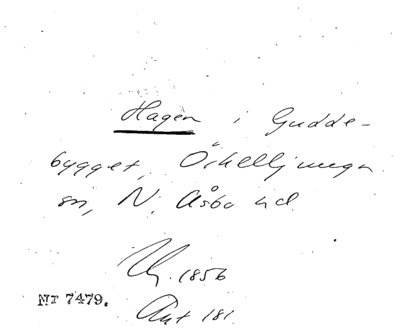 Hagen i Gudde-
bygget, Örkelljunga
sn, N. Åsbo hd
1856
Nr 7479.
Ant 181